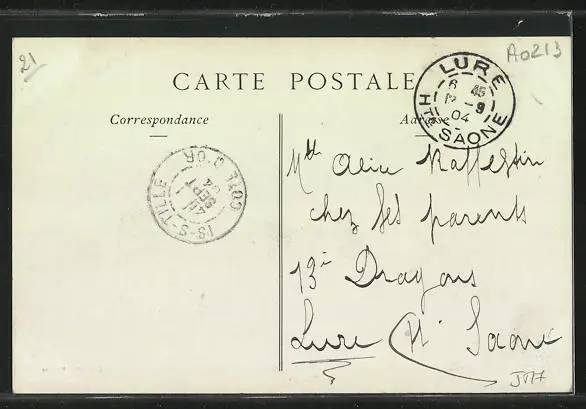 21
A0213
CARTE POSTALE
Correspondance
Adresse
LURE
6 45
12 - 9
04
HTE SAONE
IS-S-TILLE
COTE D'OR
SEPT
04
Mlle Alice Raffestin
chez ses parents
13e Dragons
Lure Hte Saone